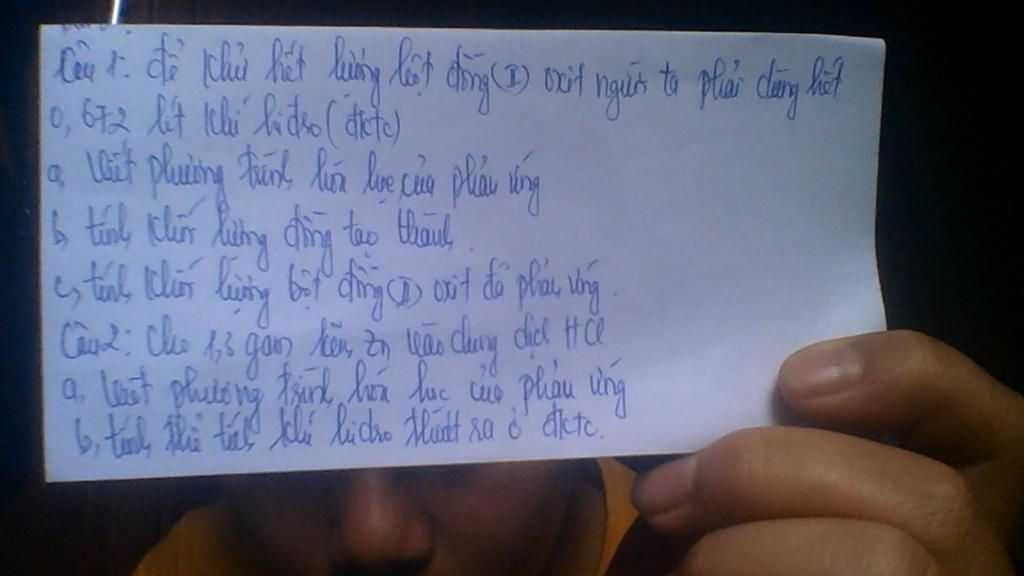 Câu 1: để khử hết lượng bột đồng (II) oxit người ta phải dùng hết
0,672 lít khí hidro (đktc)
a, Viết phương trình hóa học của phản ứng
b, tính khối lượng đồng tạo thành.
c, tính khối lượng bột đồng (II) oxit đã phản ứng.
Câu 2: Cho 1,3 gam kẽm Zn vào dung dịch HCl
a, Viết phương trình hóa học của phản ứng
b, tính thể tích khí hidro thoát ra ở đktc.